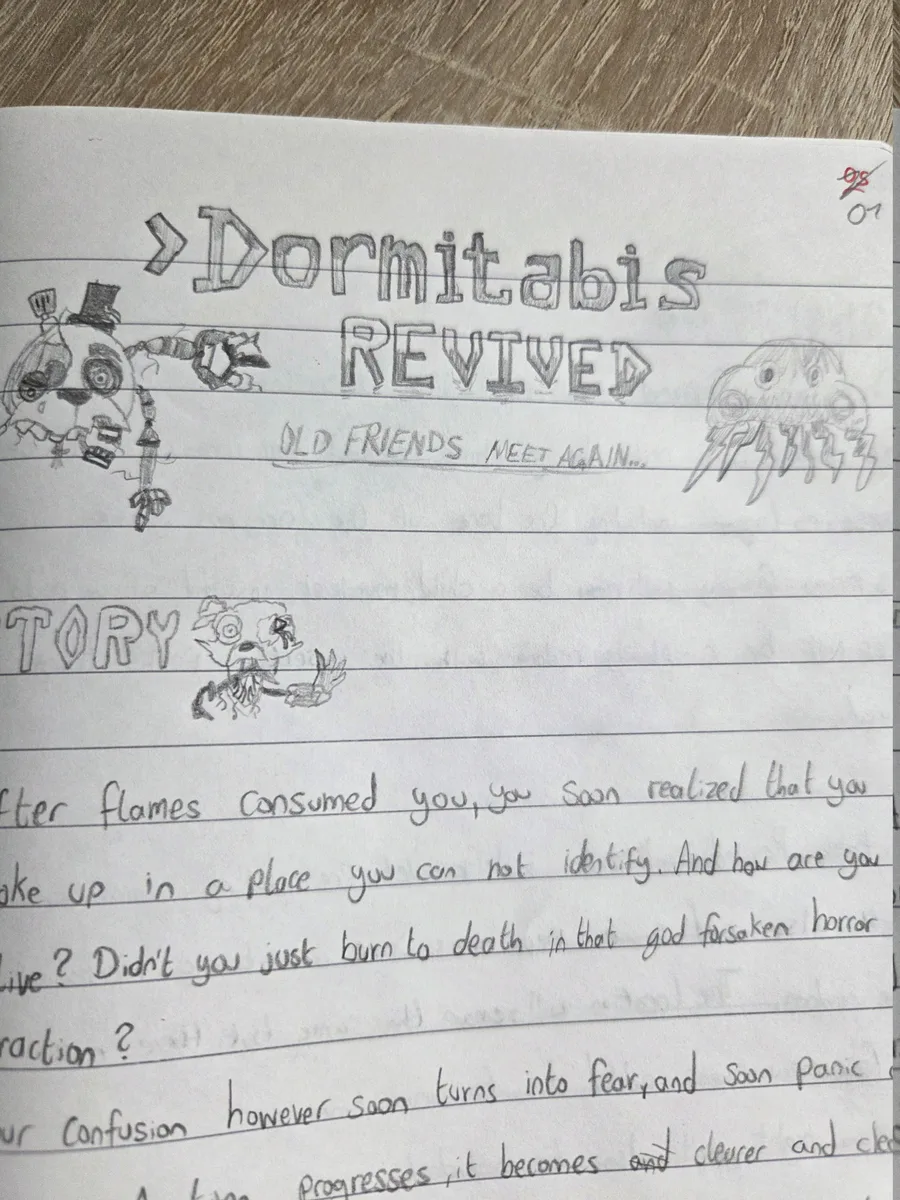 01
> Dormitabis
REVIVED
OLD FRIENDS MEET AGAIN...
TORY
fter flames consumed you, you soon realized that you
ake up in a place you can not identify. And how are you
live? Didn't you just burn to death in that god forsaken horror
raction?
ur confusion however soon turns into fear, and soon panic
progresses, it becomes and clearer and clea